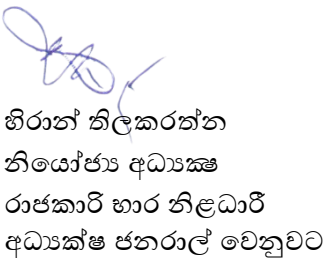 හිරාන් තිලකරත්න
නියෝජ්‍ය අධ්‍යක්‍ෂ
රාජකාරි භාර නිළධාරී
අධ්‍යක්ෂ ජනරාල් වෙනුවට